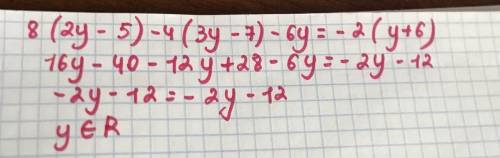 8(2y-5)-4(3y-7)-6y=-2(y+6)
16y-40-12y+28-6y=-2y-12
-2y-12=-2y-12
y∈R